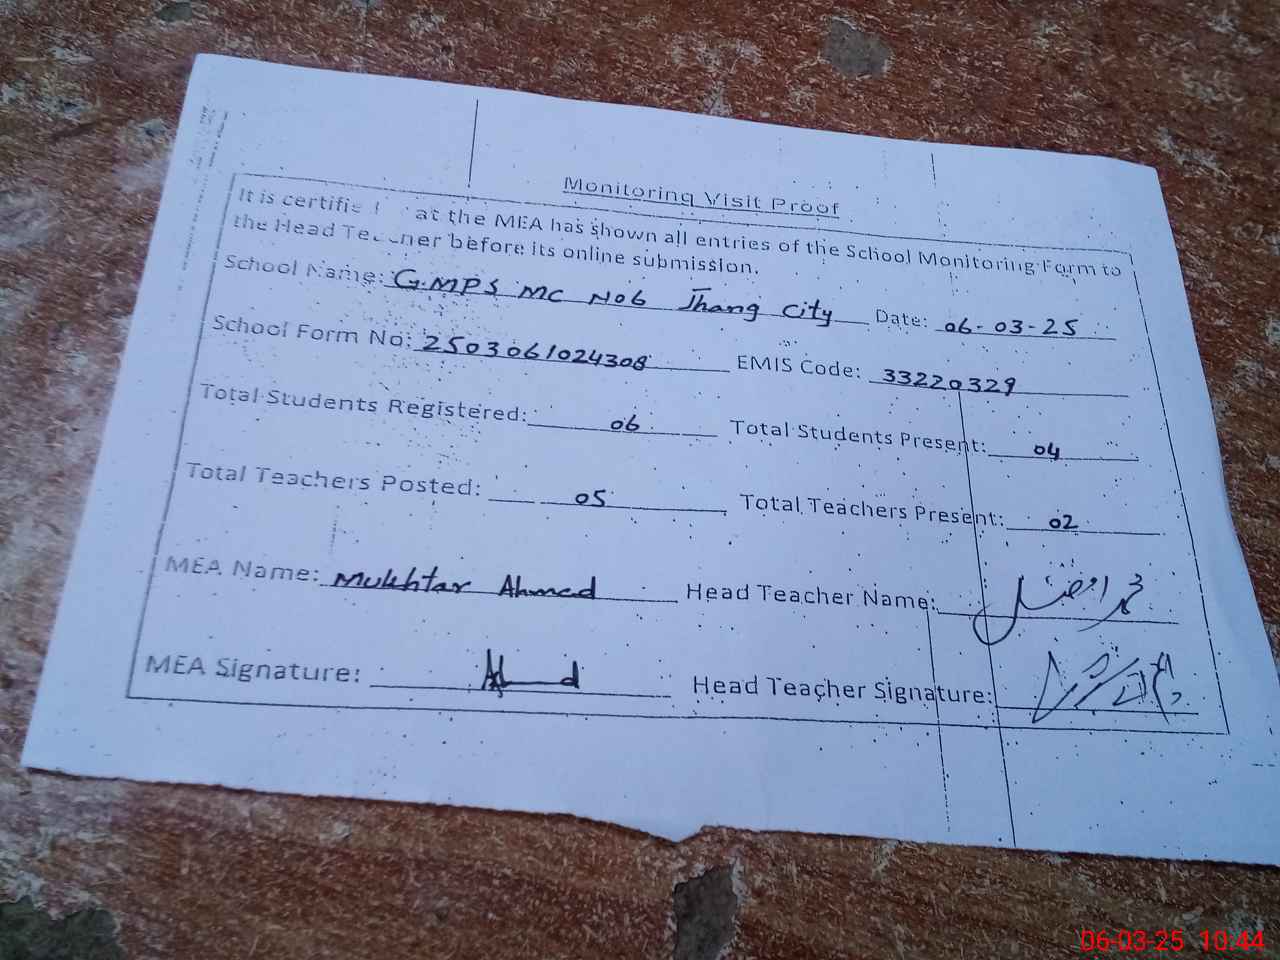 Monitoring Visit Proof
It is certifie at the MEA has shown all entries of the School Monitoring Form to
the Head Teacher before its online submission.
School Name: GMPS MC No6 Jhang City Date: 06-03-25
School Form No: 2503061024308 EMIS Code: 33220329
Total Students Registered: 06 Total Students Present: 04
Total Teachers Posted: 05 Total Teachers Present: 02
MEA Name: Mukhtar Ahmed Head Teacher Name:
MEA Signature: Head Teacher Signature:
06-03-25 10:44